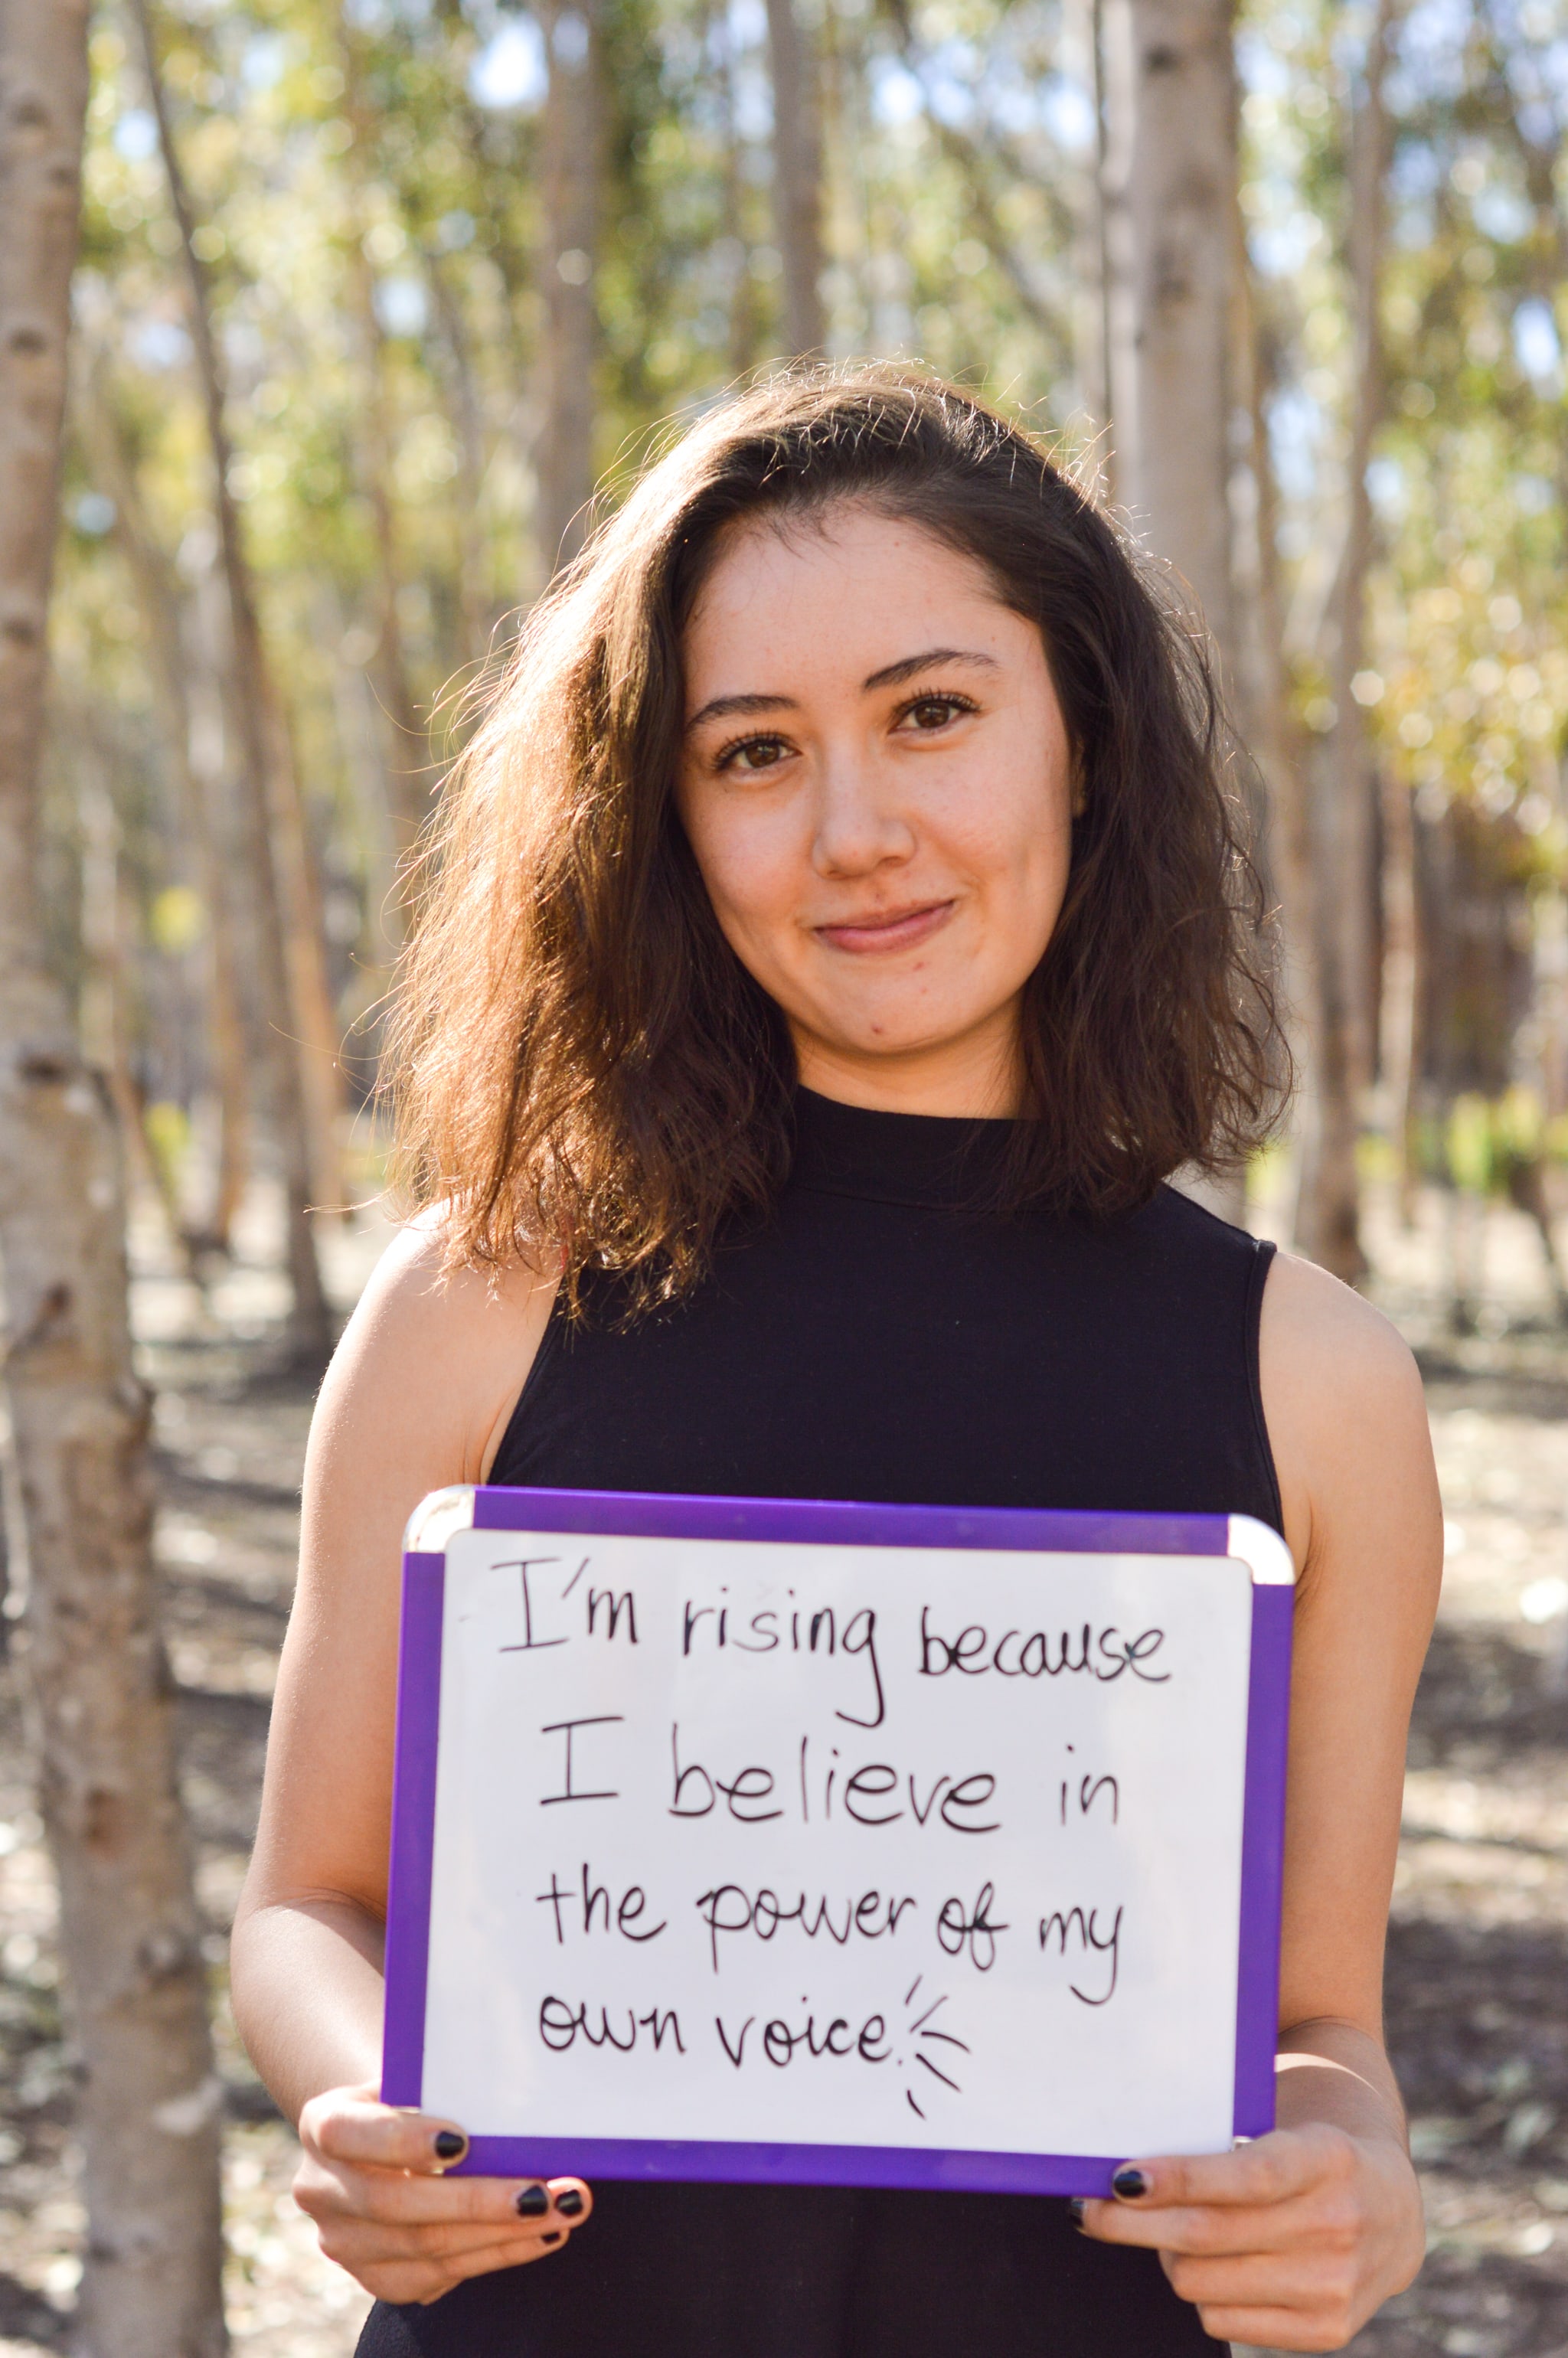 I'm rising because
I believe in
the power of my
own voice.